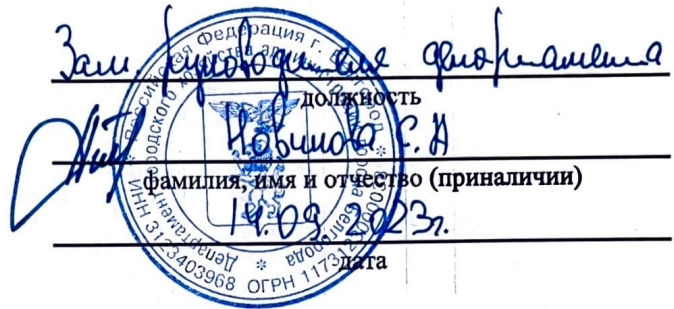 Зам. руководителя департамента
должность
С. А
фамилия, имя и отчество (приналичии)
14.09.2023г.
дата
Российская Федерация г. Белгород
Департамент городского хозяйства администрации города Белгорода
ИНН 3123403968 ОГРН